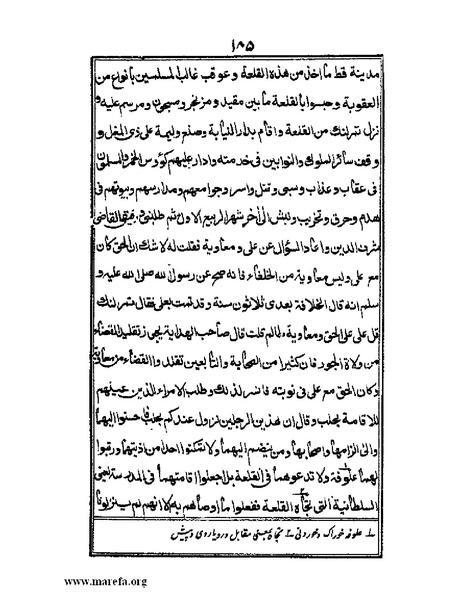 ۱۸۵
مدينة قط ما اخذ من هذه القلعة وعوقب غالب المسلمين بأنواع من
العقوبة وحبسوا بالقلعة ما بين مقيد ومزنجر ومسجون ومرسم عليه و
نزل تمرلنك من القلعة واقام بدار النيابة وصنع وليمة على زي المغل و
وقف سائر الملوك والنوابين فى خدمته وادار عليهم كؤوس الخمر والمسلمون
فى عقاب وعذاب وسبى وقتل واسر وجوامعهم ومدارسهم وبيوتهم فى
هدم وحرق وتخريب ونبش الى آخر شهر الربيع الاول ثم طلبنى ورفيقى القاضى
شرف الدين واعاد السؤال عن على ومعاوية فقلت له لا شك ان الحق كان
مع على وليس معاوية من الخلفاء فانه صح عن رسول الله صلى الله عليه و
سلم انه قال الخلافة بعدى ثلاثون سنة وقد تمت بعلى فقال تمرلنك
قل على على الحق ومعاوية ظالم قلت قال صاحب الهداية يجوز تقليد القضاء
من ولاة الجور فان كثيرا من الصحابة والتابعين تقلدوا القضاء من معاوية
وكان الحق مع على فى نوبته فانسر لذلك وطلب الامراء الذين عينهم
للاقامة بحلب وقال ان هذين الرجلين نزول عندكم بحلب فاحسنوا اليهما
والى الزامهما واصحابهما ومن ينضم اليهما ولا تمكنوا احدا من اذيتهما ورتبوا
لهما علوفة ولا تدعوهما فى القلعة بل اجعلوا اقامتهما فى المدرسة يعنى
السلطانية التى تجاه القلعة ففعلوا ما اوصاهم به الا انهم لم ينزلونا
علوفه خوراك وخوردنى تجاه بمعنى مقابل وروياروى وپيش
www.marefa.org